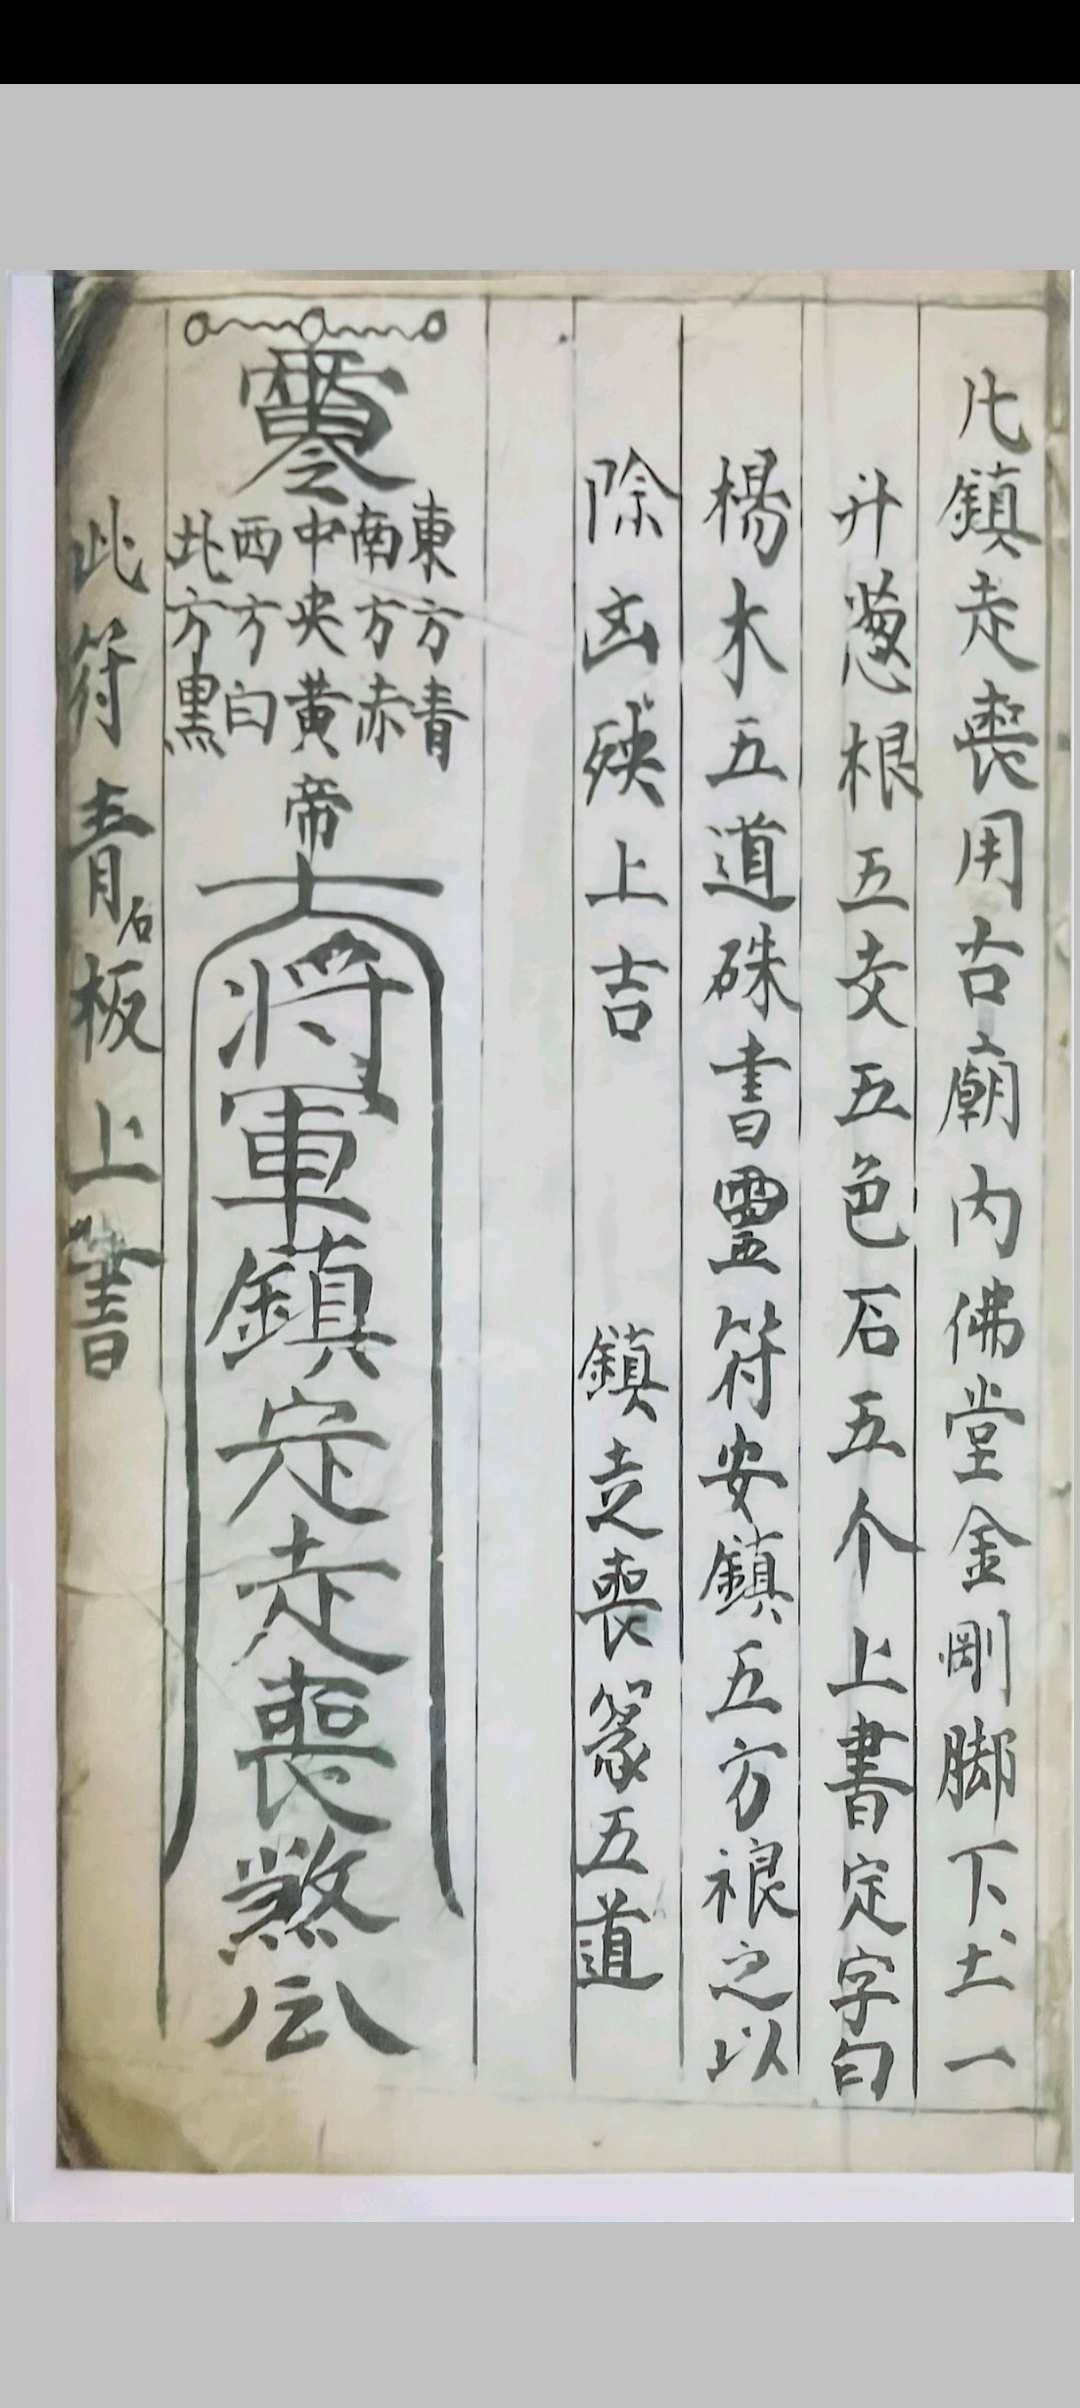 凡鎮走喪用古廟內佛堂金剛脚下土一
升葱根五支五色石五个上書定字白
楊木五道硃書靈符安鎮五方裉之以
除凶殃上吉
鎮走喪篆五道
東方青
南方赤
中央黄帝
西方白
北方黑
將軍鎮定走喪煞
此符青石板上書